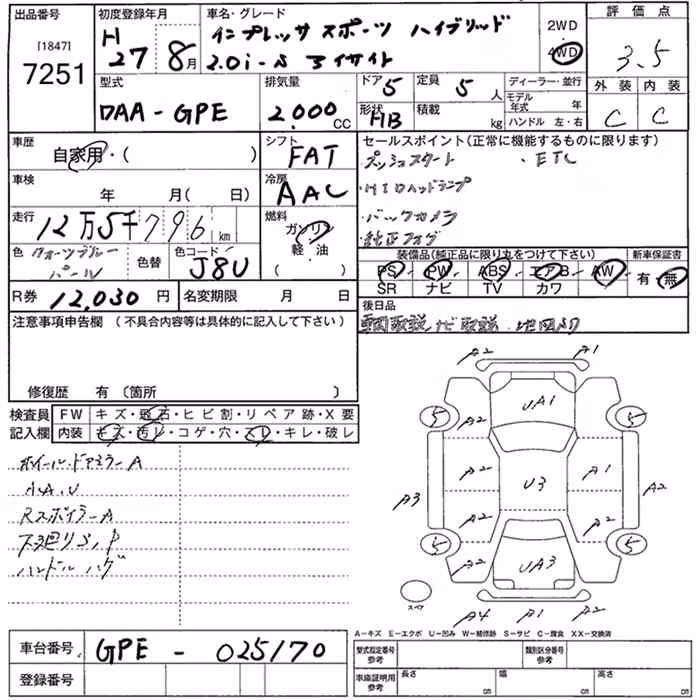 出品番号 [1847] 7251
初度登録年月 H 27 8月
車名・グレード インプレッサ スポーツ ハイブリッド
2.0i-S アイサイト
2WD
4WD
評価点 3.5
外装 内装
C C
型式 DAA-GPE
排気量 2,000 CC
ドア 5
定員 5 人
形状 HB
積載 kg
ディーラー・並行
モデル年式 年
ハンドル 左・右
車歴 自家用・( )
シフト FAT
車検 年 月( 日)
冷房 AAC
走行 12万5千796 km
燃料 ガソリン
軽・油
色 クォーツブルー
パール
色替
色コード J8U
R券 12,030 円
名変期限 月 日
セールスポイント(正常に機能するものに限ります)
・プッシュスタート ・ETC
・HIDヘッドランプ
・バックカメラ
・純正フォグ
装備品(純正品に限り丸をつけて下さい)
新車保証書
PS PW ABS エアB AW 有・無
SR ナビ TV カワ
後日品
車両取説 ナビ取説
注意事項申告欄 (不具合内容等は具体的に記入して下さい)
修復歴 有 〔箇所 〕
検査員記入欄
FW キズ・飛石・ヒビ割・リペア跡・X要
内装 キズ・汚レ・コゲ・穴・スレ・キレ・破レ
ホイール・ドアミラーA
小A.U
RスポイラーA
下廻りS,P
ハンドルハゲ
A2 A1
5 A2 UA1 5
A3 A2 U3 A1 A2
A2 A2
5 A2 UA3 A2 5
スペア
A4 A1 A2
A-キズ E-エクボ U-凹み W-補修跡 S-サビ C-腐食 XX-交換済
車台番号 GPE - 025170
登録番号
型式指定番号 参考
類別区分番号 参考
車庫証明用 参考
長さ cm 幅 cm 高さ cm